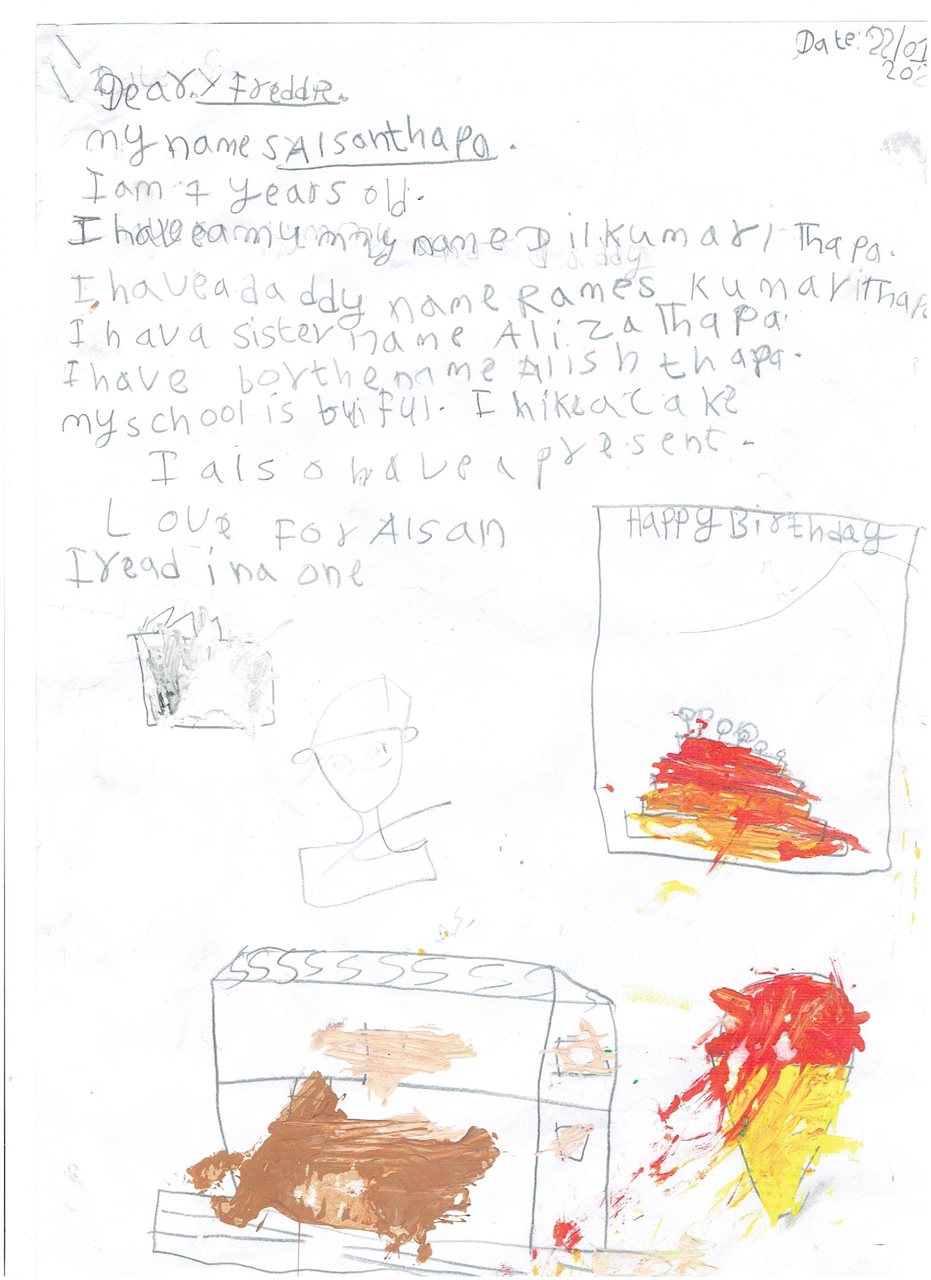 Date: 22/01
Dear, Freddie.
my name s Alsanthapa.
I am 7 years old.
I have a mummy name Dilkumari Thapa.
I have a daddy name Rames Kumari Thapa
I hava sister name Aliza Thapa.
I have borthe name Alish thapa.
my school is I hike a cake
I also have a present.
Love For Alsan
I read in a one
Happy Birthday